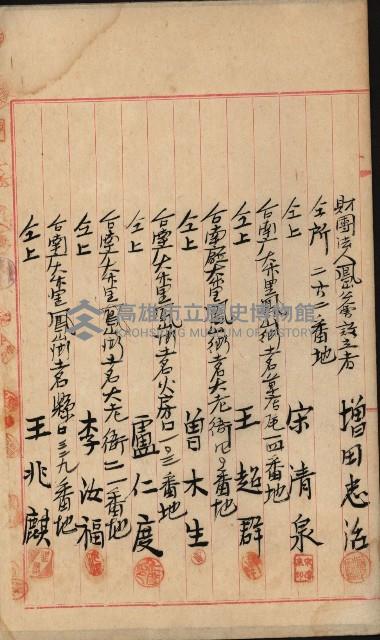 財團法人鳳 設立者 增田忠治
仝所 二六二番地
仝上 宋清泉
台南廳大竹里鳳山街 一四番地
仝上 王超群
台南廳大竹里鳳山街 大老衙 番地
仝上 曾木生
台南廳大竹里鳳山街 火房口一三番地
仝上 盧仁度
台南廳大竹里鳳山街 大老衙二一番地
仝上 李汝福
台南廳大竹里鳳山街 縣口三三九番地
仝上 王兆麒
高雄市立歷史博物館
KAOHSIUNG MUSEUM OF HISTORY